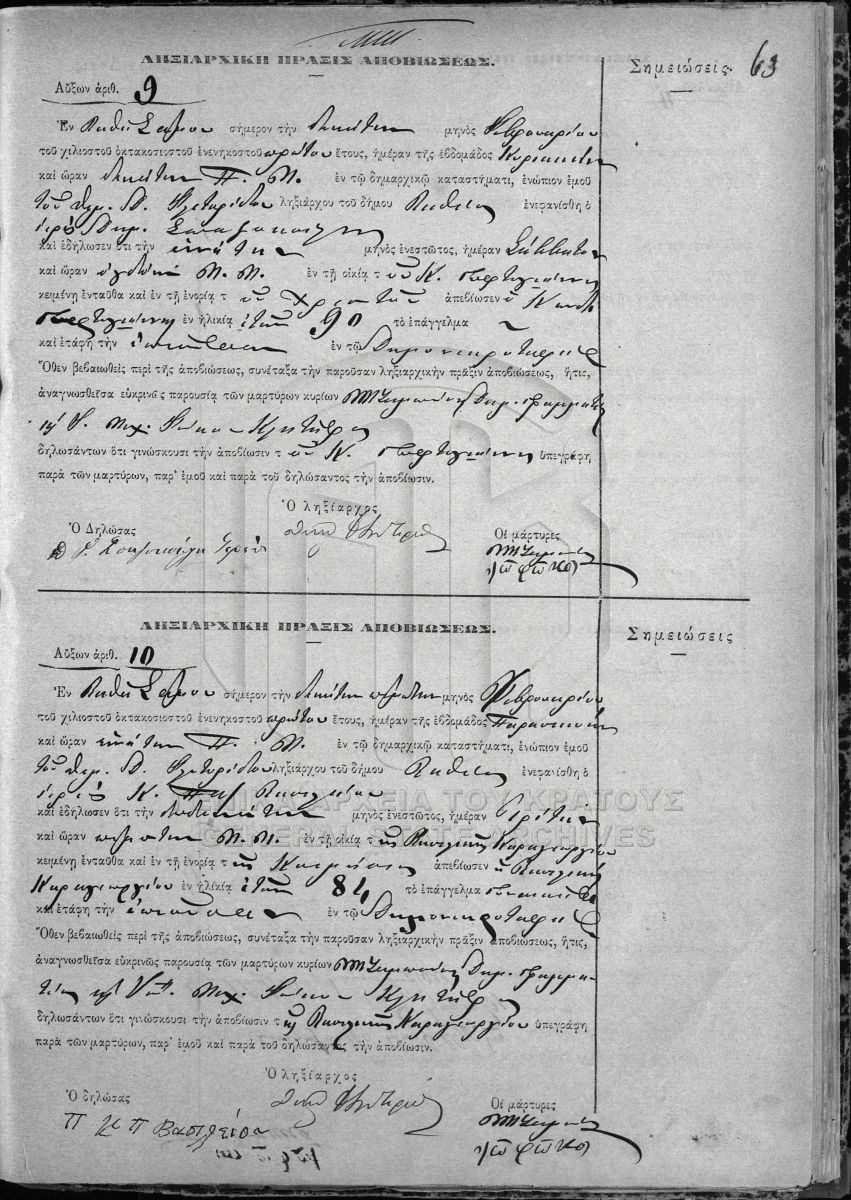 63
ΛΗΞΙΑΡΧΙΚΗ ΠΡΑΞΙΣ ΑΠΟΒΙΩΣΕΩΣ.
Σημειώσεις.
Αὔξων ἀριθ. 9
Ἐν Βαθεῖ Σάμου σήμερον τὴν δεκάτην μηνὸς Φεβρουαρίου
τοῦ χιλιοστοῦ ὀκτακοσιοστοῦ ἐνενηκοστοῦ πρώτου ἔτους, ἡμέραν τῆς ἑβδομάδος Κυριακὴν
καὶ ὥραν δεκάτην Π. Μ. ἐν τῷ δημαρχικῷ καταστήματι, ἐνώπιον ἐμοῦ
τοῦ ληξιάρχου τοῦ δήμου Βαθέος ἐνεφανίσθη ὁ
καὶ ἐδήλωσεν ὅτι τὴν ἐνάτην μηνὸς ἐνεστῶτος, ἡμέραν Σάββατον
καὶ ὥραν ὀγδόην Μ. Μ. ἐν τῇ οἰκίᾳ τοῦ Κ.
κειμένῃ ἐνταῦθα καὶ ἐν τῇ ἐνορίᾳ τοῦ ἀπεβίωσεν ὁ Κωνστ.
ἐν ἡλικίᾳ ἐτῶν 90 τὸ ἐπάγγελμα
καὶ ἐτάφη τὴν ἐπιοῦσαν ἐν τῷ Δημ. νεκροταφείῳ
Ὅθεν βεβαιωθεὶς περὶ τῆς ἀποβιώσεως, συνέταξα τὴν παροῦσαν ληξιαρχικὴν πρᾶξιν ἀποβιώσεως, ἥτις,
ἀναγνωσθεῖσα εὐκρινῶς παρουσίᾳ τῶν μαρτύρων κυρίων Δημ. Γραμματέως
Κλητῆρος
δηλωσάντων ὅτι γινώσκουσι τὴν ἀποβίωσιν τοῦ Κ. ὑπεγράφη
παρὰ τῶν μαρτύρων, παρ' ἐμοῦ καὶ παρὰ τοῦ δηλώσαντος τὴν ἀποβίωσιν.
Ὁ ληξίαρχος
Ὁ Δηλώσας
Οἱ μάρτυρες
ΛΗΞΙΑΡΧΙΚΗ ΠΡΑΞΙΣ ΑΠΟΒΙΩΣΕΩΣ.
Σημειώσεις
Αὔξων ἀριθ. 10
Ἐν Βαθεῖ Σάμου σήμερον τὴν δεκάτην πέμπτην μηνὸς Φεβρουαρίου
τοῦ χιλιοστοῦ ὀκτακοσιοστοῦ ἐνενηκοστοῦ πρώτου ἔτους, ἡμέραν τῆς ἑβδομάδος Παρασκευὴν
καὶ ὥραν ἐνάτην Π. Μ. ἐν τῷ δημαρχικῷ καταστήματι, ἐνώπιον ἐμοῦ
τοῦ ληξιάρχου τοῦ δήμου Βαθέος ἐνεφανίσθη ὁ
ἱερεὺς Κ. Βασιλείου
ΓΕΝΙΚΑ ΑΡΧΕΙΑ ΤΟΥ ΚΡΑΤΟΥΣ
καὶ ἐδήλωσεν ὅτι τὴν δωδεκάτην μηνὸς ἐνεστῶτος, ἡμέραν Τρίτην
GENERAL STATE ARCHIVES
καὶ ὥραν πέμπτην Μ. Μ. ἐν τῇ οἰκίᾳ τῆς Βασιλικῆς Καραγεωργίου
κειμένῃ ἐνταῦθα καὶ ἐν τῇ ἐνορίᾳ τῆς Κοιμήσεως ἀπεβίωσεν ἡ Βασιλικὴ
Καραγεωργίου ἐν ἡλικίᾳ ἐτῶν 84 τὸ ἐπάγγελμα
καὶ ἐτάφη τὴν ἐπιοῦσαν ἐν τῷ Δημ. νεκροταφείῳ
Ὅθεν βεβαιωθεὶς περὶ τῆς ἀποβιώσεως, συνέταξα τὴν παροῦσαν ληξιαρχικὴν πρᾶξιν ἀποβιώσεως, ἥτις,
ἀναγνωσθεῖσα εὐκρινῶς παρουσίᾳ τῶν μαρτύρων κυρίων Δημ. Γραμμα-
τέως Κλητῆρος
δηλωσάντων ὅτι γινώσκουσι τὴν ἀποβίωσιν τῆς Βασιλικῆς Καραγεωργίου ὑπεγράφη
παρὰ τῶν μαρτύρων, παρ' ἐμοῦ καὶ παρὰ τοῦ δηλώσαντος τὴν ἀποβίωσιν.
Ὁ ληξίαρχος
Ὁ δηλώσας
Οἱ μάρτυρες
Π Κ Π Βασιλείου